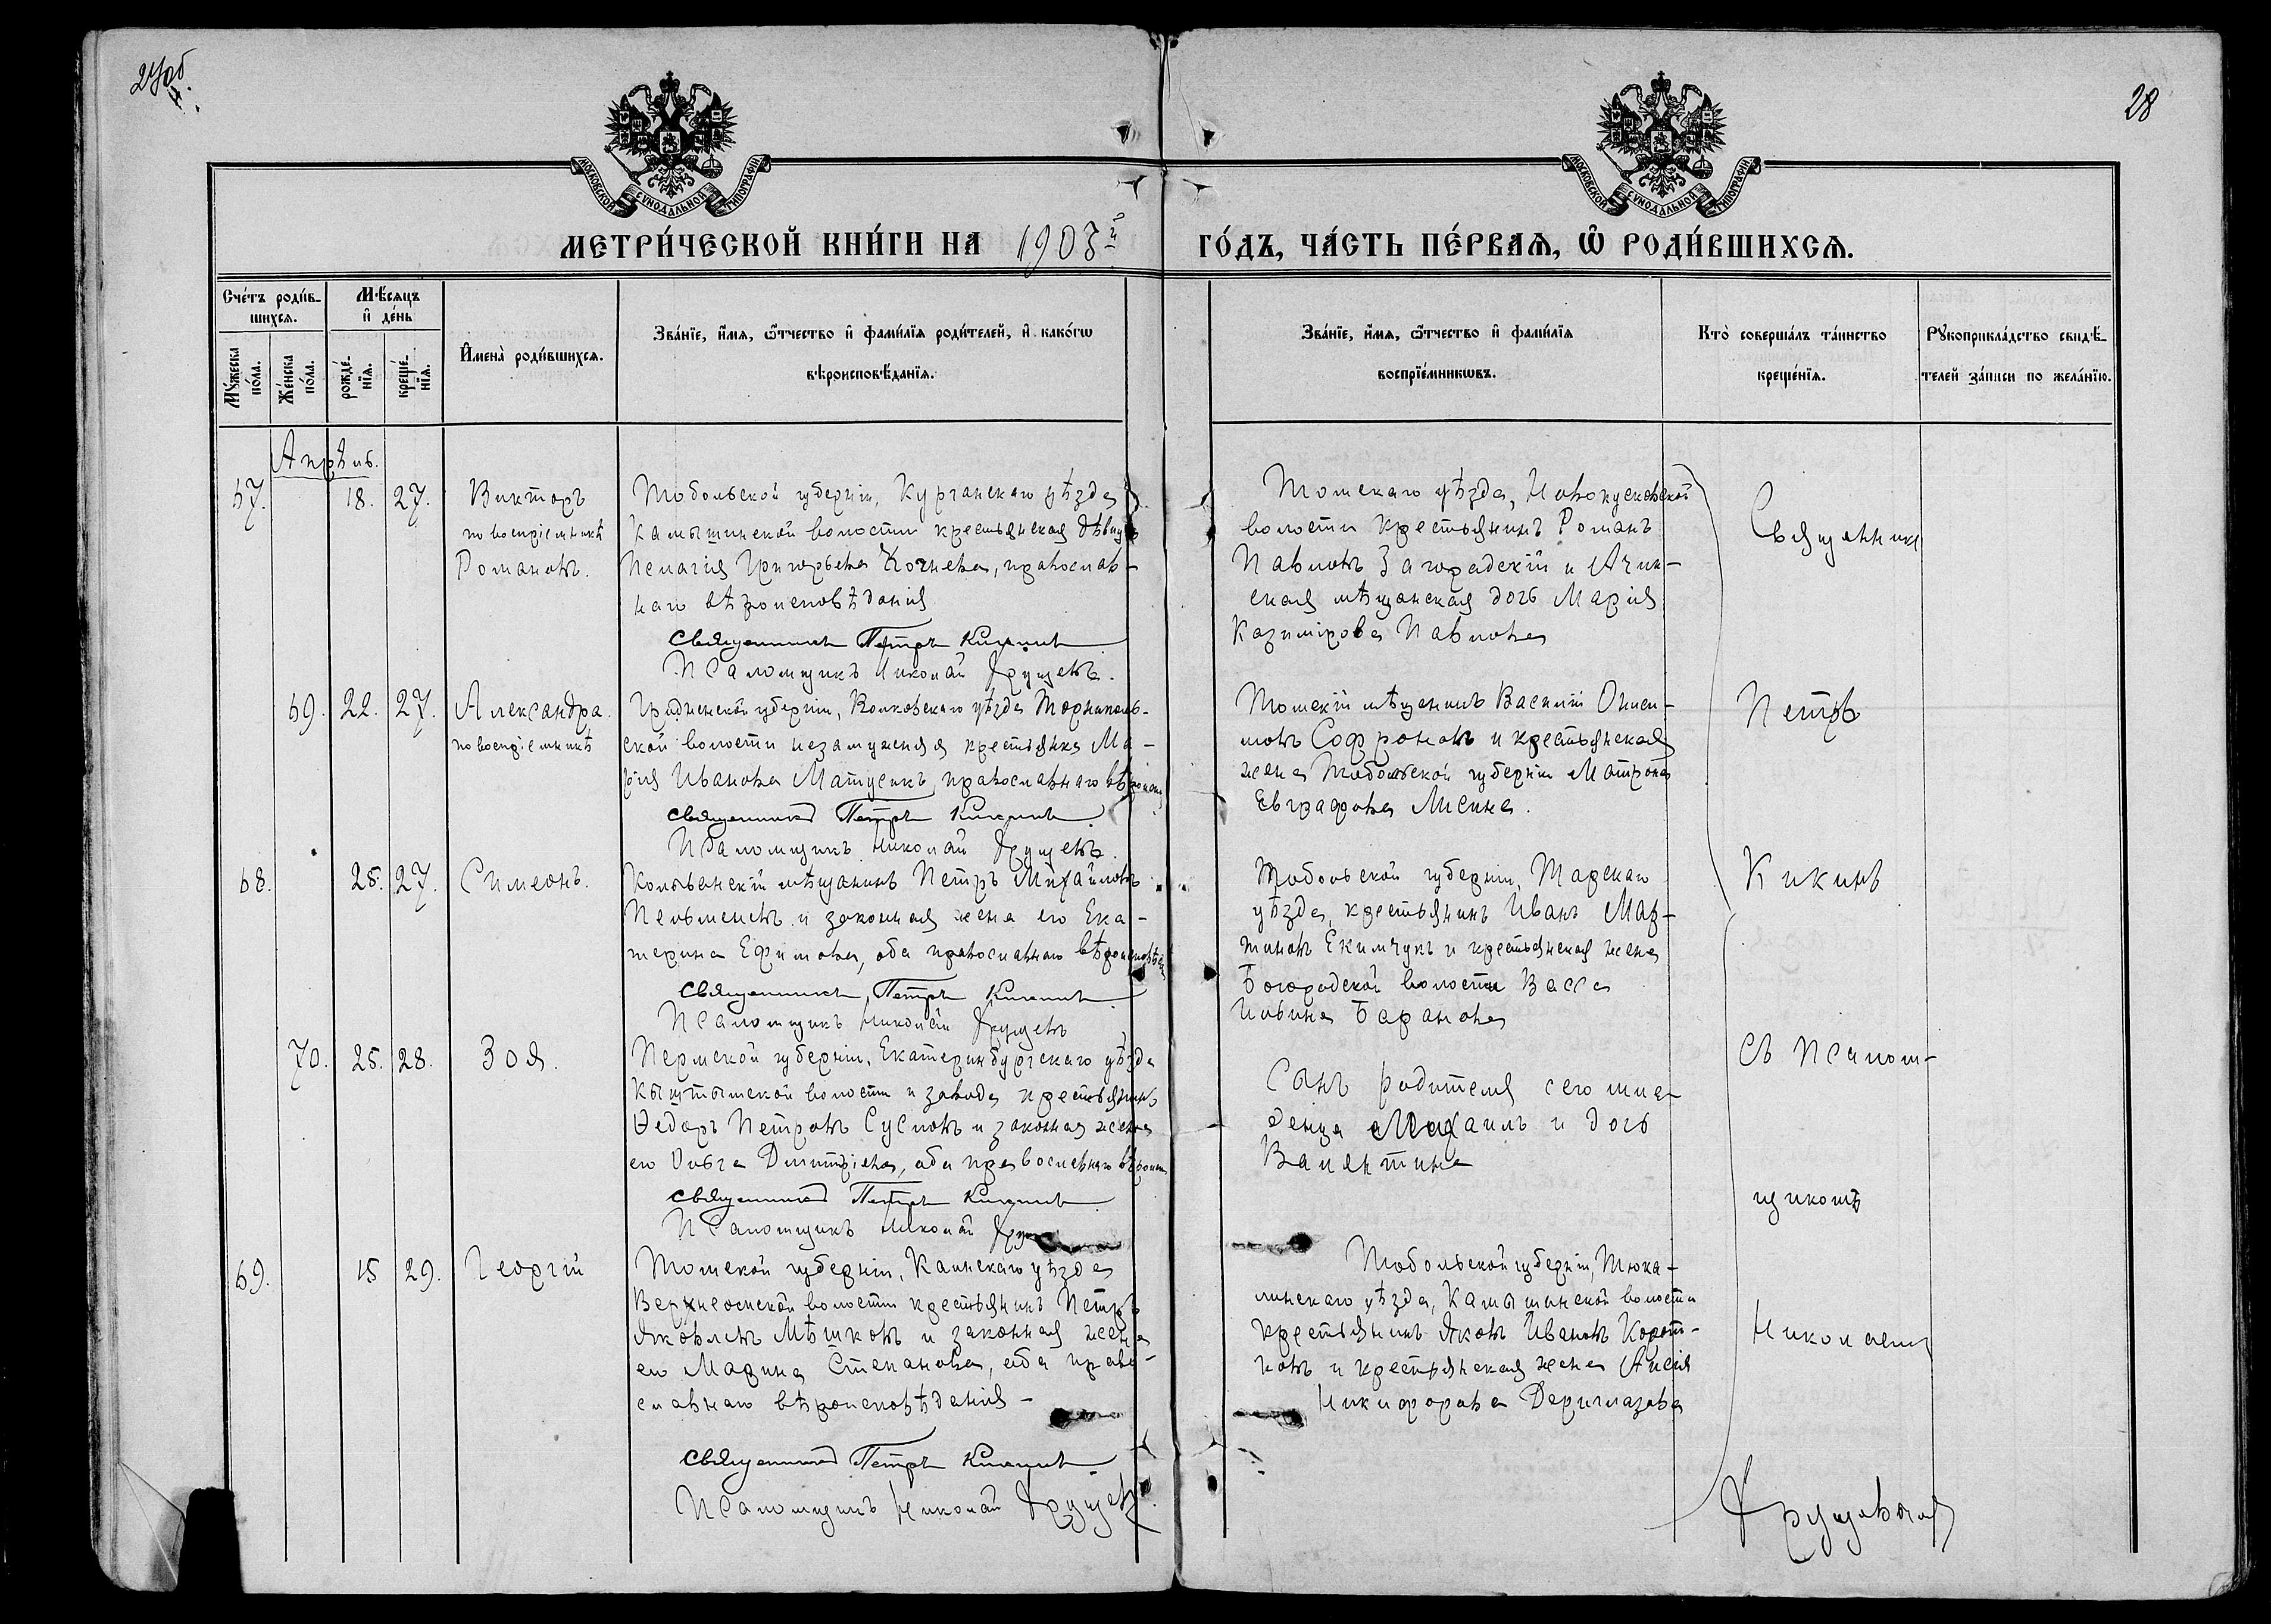 27об
28
МОСКОВСКОЙ СУНОДАЛЬНОЙ ТИПОГРАФІИ
МОСКОВСКОЙ СУНОДАЛЬНОЙ ТИПОГРАФІИ
МЕТРИ́ЧЕСКОЙ КНИ́ГИ НА 1903й ГО́ДЪ, ЧА́СТЬ ПЕ́РВАѦ, Ѡ РОДИ́ВШИХСѦ.
Сче́тъ роди́в-
шихсѧ.
Мѣ́сѧцъ
и҆ де́нь
Му́жеска
по́ла.
Же́нска
по́ла.
рожде́-
нїѧ.
креще́-
нїѧ.
И҆мена̀ роди́вшихсѧ.
Зва́нїе, и҆́мѧ, ѻ҆́тчество и҆ фами́лїѧ роди́телей, и҆ како́гѡ
вѣроисповѣ́данїѧ.
Зва́нїе, и҆́мѧ, ѻ҆́тчество и҆ фами́лїѧ
воспрїе́мникѡвъ.
Кто̀ соверша́лъ та́инство
креще́нїѧ.
Рꙋкоприкла́дство свидѣ́-
телей за́писи по жела́нїю.
Апрѣль.
67.
18.
27.
Викторъ
по воспріемникѣ
Романовъ.
Тобольской губерніи, Курганскаго уѣзда
Камышинской волости крестьянская дѣвица
Пелагія Григорьева Кочнева, православ-
наго вѣроисповѣданія
Священникъ Петръ Кикинъ
Псаломщикъ Николай Хрущевъ.
Томскаго уѣзда, Новокусковской
волости крестьянинъ Романъ
Павловъ Загорадскій и Ачин-
ская мѣщанская дочь Марія
Казимірова Павлова
69.
22.
27.
Александра
по воспріемникѣ
Гродненской губерніи, Волковскаго уѣзда
ской волости незамужняя крестьянка Ма-
рія Иванова Матусикъ, православнаго вѣроисп
Священникъ Петръ Кикинъ
Псаломщикъ Николай Хрущевъ.
Томскій мѣщанинъ Василій Ониси-
мовъ Софроновъ и крестьянская
жена Тобольской губерніи Матрона
Евграфова Лисина.
68.
25.
27.
Симеонъ.
Колыванскій мѣщанинъ Петръ Михайловъ
и законная жена его Ека-
терина Ефимова, оба православнаго вѣроисповѣд
Священникъ Петръ Кикинъ
Псаломщикъ Николай Хрущевъ
Тобольской губерніи, Тарскаго
уѣзда, крестьянинъ Иванъ Мар-
тиновъ Екимчукъ и крестьянская жена
Богородской волости Васса
Ильина Баранова
70.
25.
28.
Зоя.
Пермской губерніи, Екатеринбургскаго уѣзда
Кыштымской волости и завода крестьянинъ
Ѳедоръ Петровъ Сусловъ и законная жена
его Ольга Димитріева, оба православнаго вѣроисп
Священникъ Петръ Кикинъ
Псаломщикъ Николай
Сынъ родителя сего мла-
денца Михаилъ и дочь
Валентина
69.
15
29.
Георгій
Томской губерніи, Каинскаго уѣзда
Верхнеомской волости крестьянинъ Петръ
Яковлевъ Мѣшковъ и законная жена
его Марина Степанова, оба право-
славнаго вѣроисповѣданія -
Священникъ Петръ Кикинъ
Псаломщикъ Николай Хрущевъ
Тобольской губерніи, Тюка-
линскаго уѣзда, Камышинской волости
крестьянинъ Яковъ Ивановъ Корот-
ковъ и крестьянская жена Анисія
Никифорова Дериглазова
Священникъ
Петръ
Кикинъ
съ псалом-
щикомъ
Николаемъ
Хрущовымъ